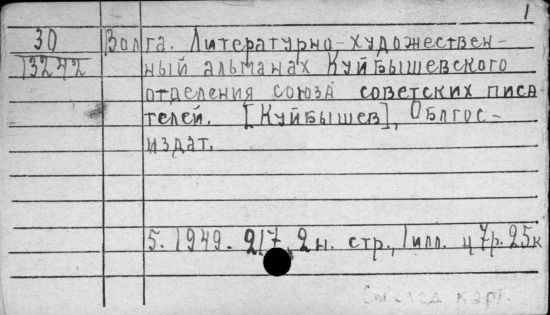 1
30 Волга. Литературно-художествен-
13242 ный альманах Куйбышевского
отделения союза советских писа
телей. [Куйбышев], Облгос-
издат.
5. 1949. 217, 2 н. стр., 1 илл. ц 7р. 25к
См. след карт.